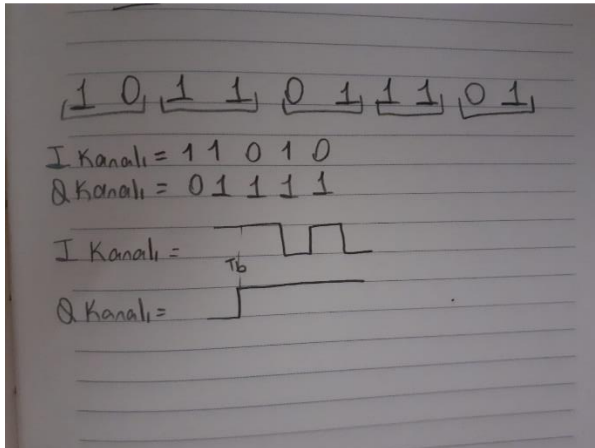 1 0 1 1 0 1 1 1 0 1
I Kanalı = 1 1 0 1 0
Q Kanalı = 0 1 1 1 1
I Kanalı =
Tb
Q Kanalı =